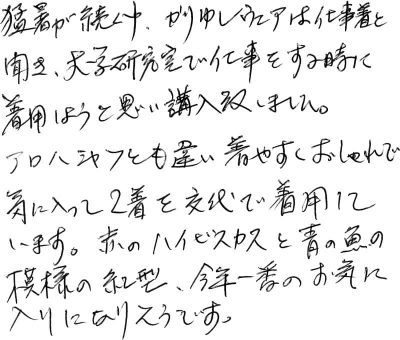 猛暑が続く中、かりゆしウェアは仕事着と
聞き、大学研究室で仕事をする時に
着用しようと思い講入致しました。
アロハシャツとも違い着やすくおしゃれで
気に入って2着を交代で着用して
います。赤のハイビスカスと青の魚の
模様の紅型、今年一番のお気に
入りになりそうです。